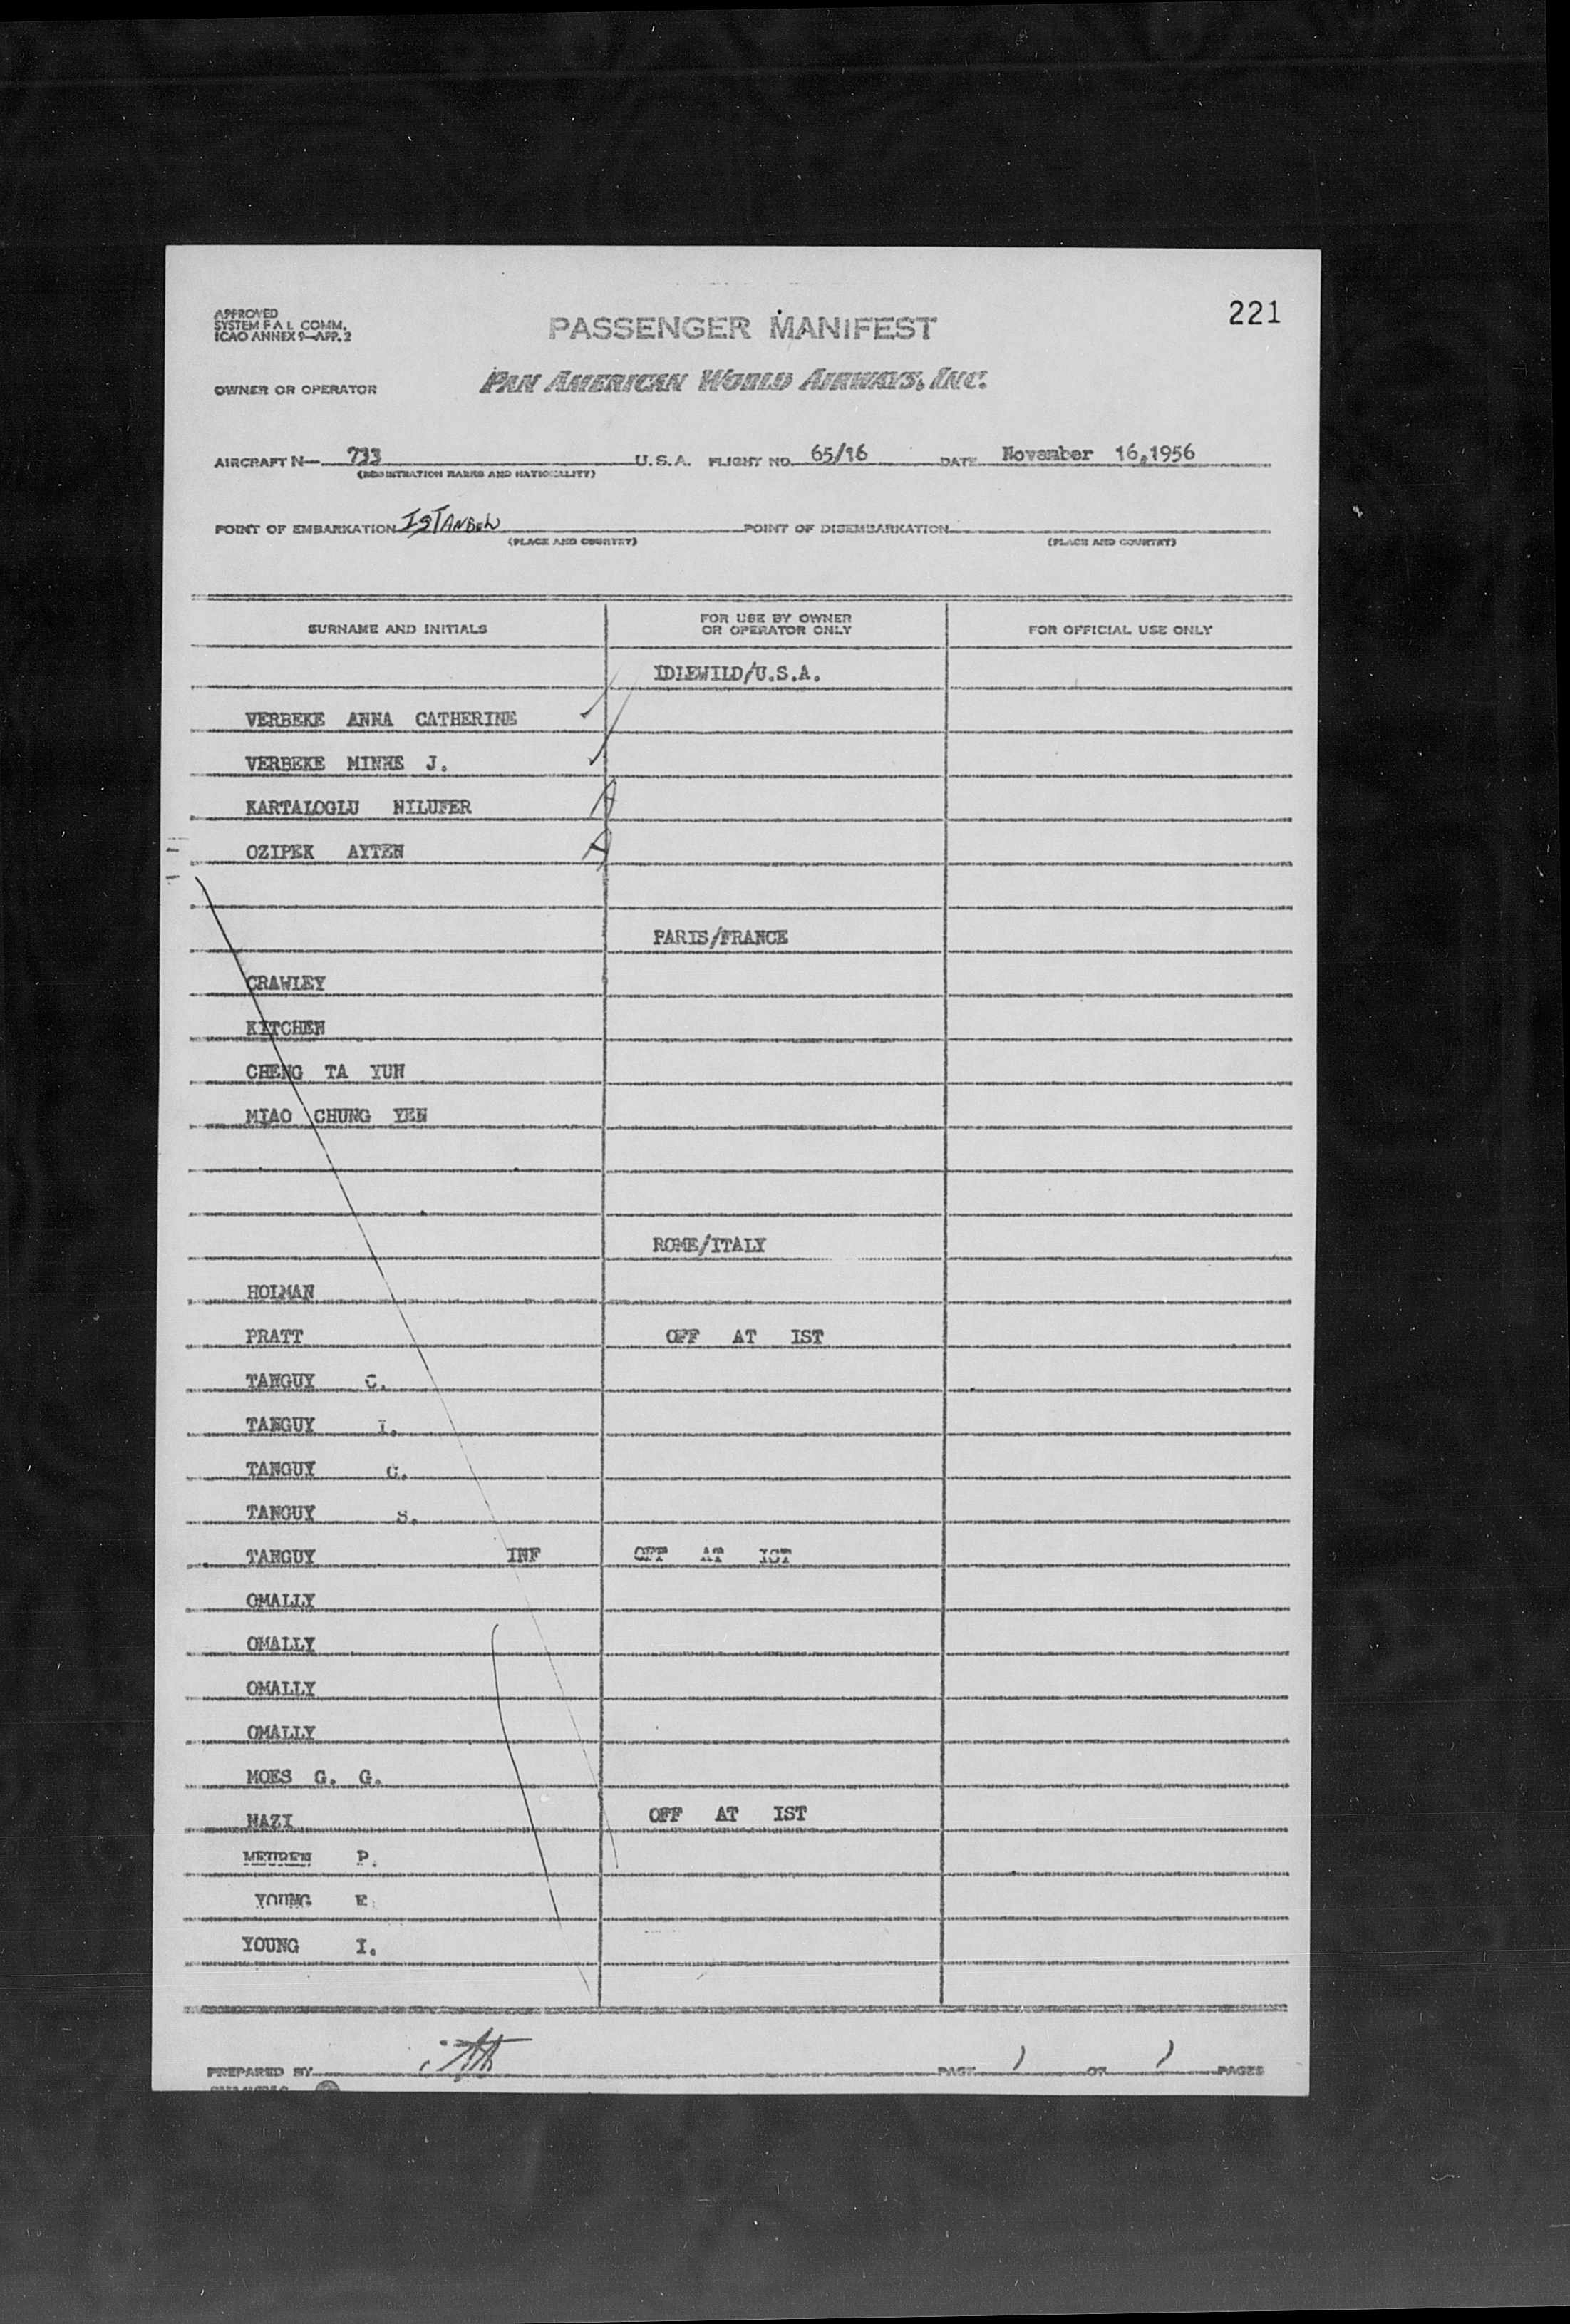 APPROVED
SYSTEM F A L COMM.
ICAO ANNEX 9—APP. 2
PASSENGER MANIFEST
221
OWNER OR OPERATOR PAN AMERICAN WORLD AIRWAYS, INC.
AIRCRAFT N— 733 U.S.A. FLIGHT NO. 65/16 DATE November 16,1956
(REGISTRATION MARKS AND NATIONALITY)
POINT OF EMBARKATION ISTANBUL POINT OF DISEMBARKATION
(PLACE AND COUNTRY) (PLACE AND COUNTRY)
SURNAME AND INITIALS FOR USE BY OWNER OR OPERATOR ONLY FOR OFFICIAL USE ONLY
IDLEWILD/U.S.A.
VERBEKE ANNA CATHERINE
VERBEKE MINKE J.
KARTALOGLU NILUFER A
OZIPEK AYTEN A
PARIS/FRANCE
CRAWLEY
KITCHEN
CHENG TA YUN
MIAO CHUNG YEN
ROME/ITALY
HOLMAN
PRATT OFF AT IST
TANGUY C.
TANGUY I.
TANGUY C.
TANGUY S.
TANGUY INF OFF AT IST
OMALLY
OMALLY
OMALLY
OMALLY
MOES G. G.
NAZI OFF AT IST
MEUREN P.
YOUNG E
YOUNG I.
PREPARED BY PAGE 1 OF 1 PAGES